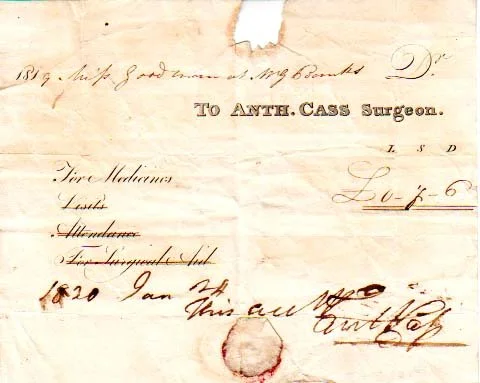 1819 Miss Goodman at Mr Banks Dr
To ANTH. CASS Surgeon.
L S D
For Medicines
£0-7-6
Visits
Attendance
For Surgical Aid
1820 Jan 24
Anth Cass